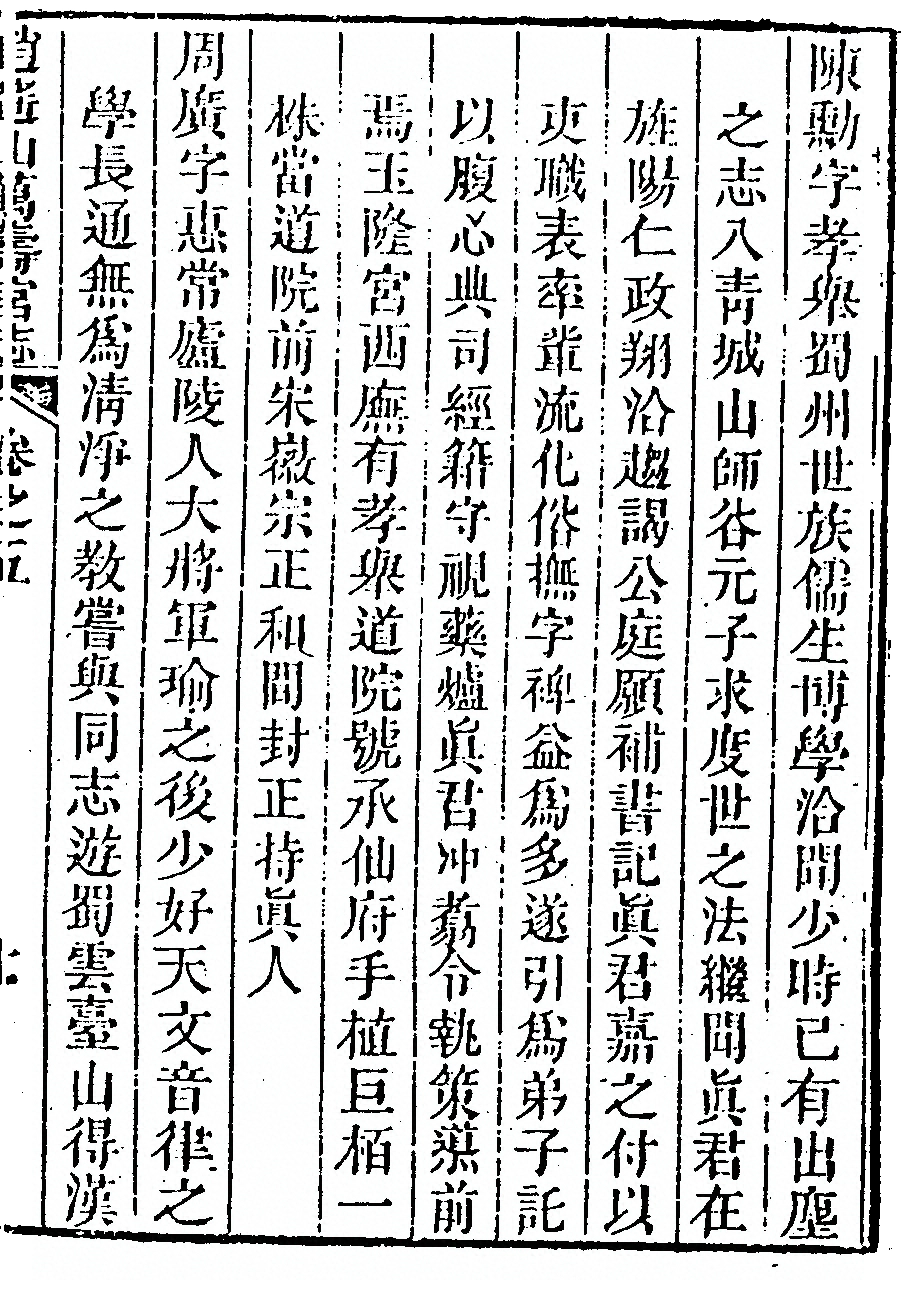 陳勳字孝舉蜀州世族儒生博學洽聞少時已有出塵
之志入青城山師谷元子求度世之法繼聞眞君在
旌陽仁政翔洽趨謁公庭願補書記眞君嘉之付以
吏職表率輩流化俗撫字裨益爲多遂引爲弟子託
以腹心典司經籍守視藥爐眞君冲舉令執策導前
焉玉隆宮西廡有孝舉道院號承仙府手植巨栢一
株當道院前宋徽宗正和間封正持眞人
周廣字惠常廬陵人大將軍瑜之後少好天文音律之
學長通無爲清淨之教嘗與同志遊蜀雲臺山得漢
逍遙山萬壽宮志 卷之五